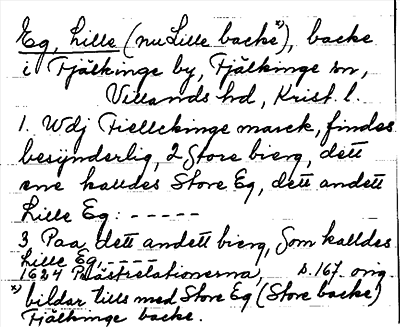 Eg, Lille (nu Lille backe*), backe
i Fjälkinge by, Fjälkinge sn,
Villands hd, Krist. l.
1. Wdj Fiellckinge marck, findes
besÿnderlig, 2 Store bierg, dett
ene kalldes Store Eg, dett andett
Lille Eg: - - - - -
3 Paa, dett andett bierg, Som kalldes
Lille Eg, - - - -
1624 Prästrelationerna, s. 167. orig.
*) bildar tills med Store Eg (Store backe)
Fjälkinge backe.